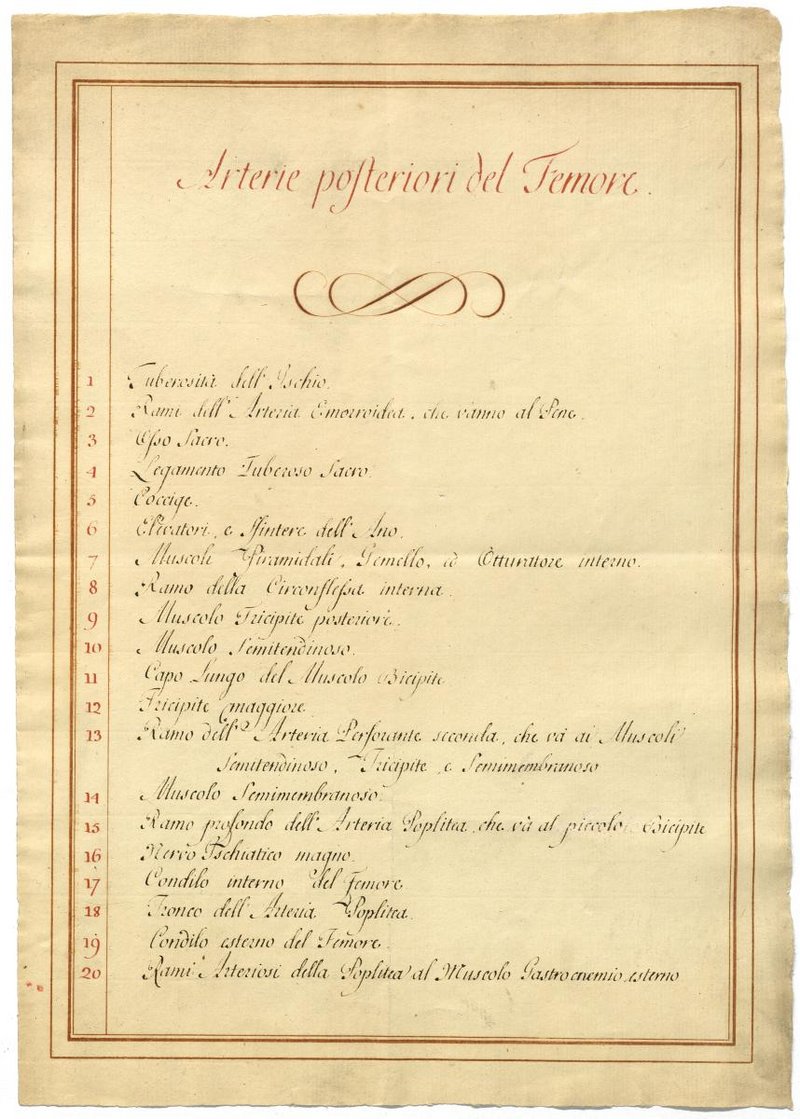 Arterie posteriori del Femore.
1 Tuberosità dell' Ischio.
2 Rami dell' Arteria Emorroidea, che vanno al Pene.
3 Osso Sacro.
4 Legamento Tuberoso Sacro.
5 Coccige.
6 Elevatori, e Sfintere dell' Ano.
7 Muscoli Piramidali, Gemello, ed Otturatore interno.
8 Ramo della Circonflessa interna.
9 Muscolo Tricipite posteriore.
10 Muscolo Semitendinoso.
11 Capo Lungo del Muscolo Bicipite
12 Tricipite maggiore
13 Ramo dell' Arteria Perforante seconda, che và ai Muscoli
Semitendinoso, Tricipite, e Semimembranoso
14 Muscolo Semimembranoso.
15 Ramo profondo dell' Arteria Poplitea, che và al piccolo Bicipite
16 Nervo Ischiatico magno.
17 Condilo interno del Femore
18 Tronco dell' Arteria Poplitea.
19 Condilo esterno del Femore.
20 Rami Arteriosi della Poplitea al Muscolo Gastrocnemio esterno